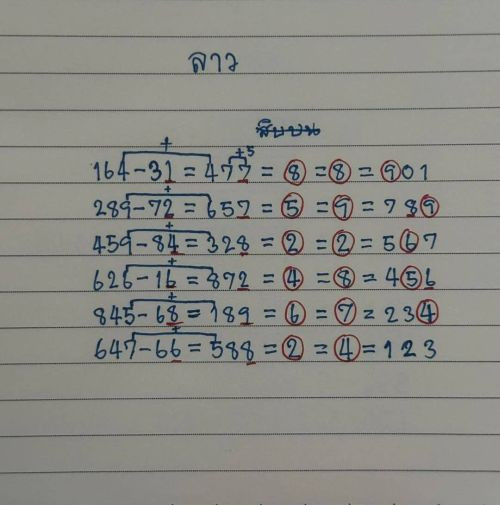 ลาว
สิบบน
+
+5
164-31=477=8=8=901
+
289-72=657=5=9=789
+
459-84=328=2=2=567
+
626-16=872=4=8=456
+
845-68=189=6=7=234
+
647-66=588=2=4=123